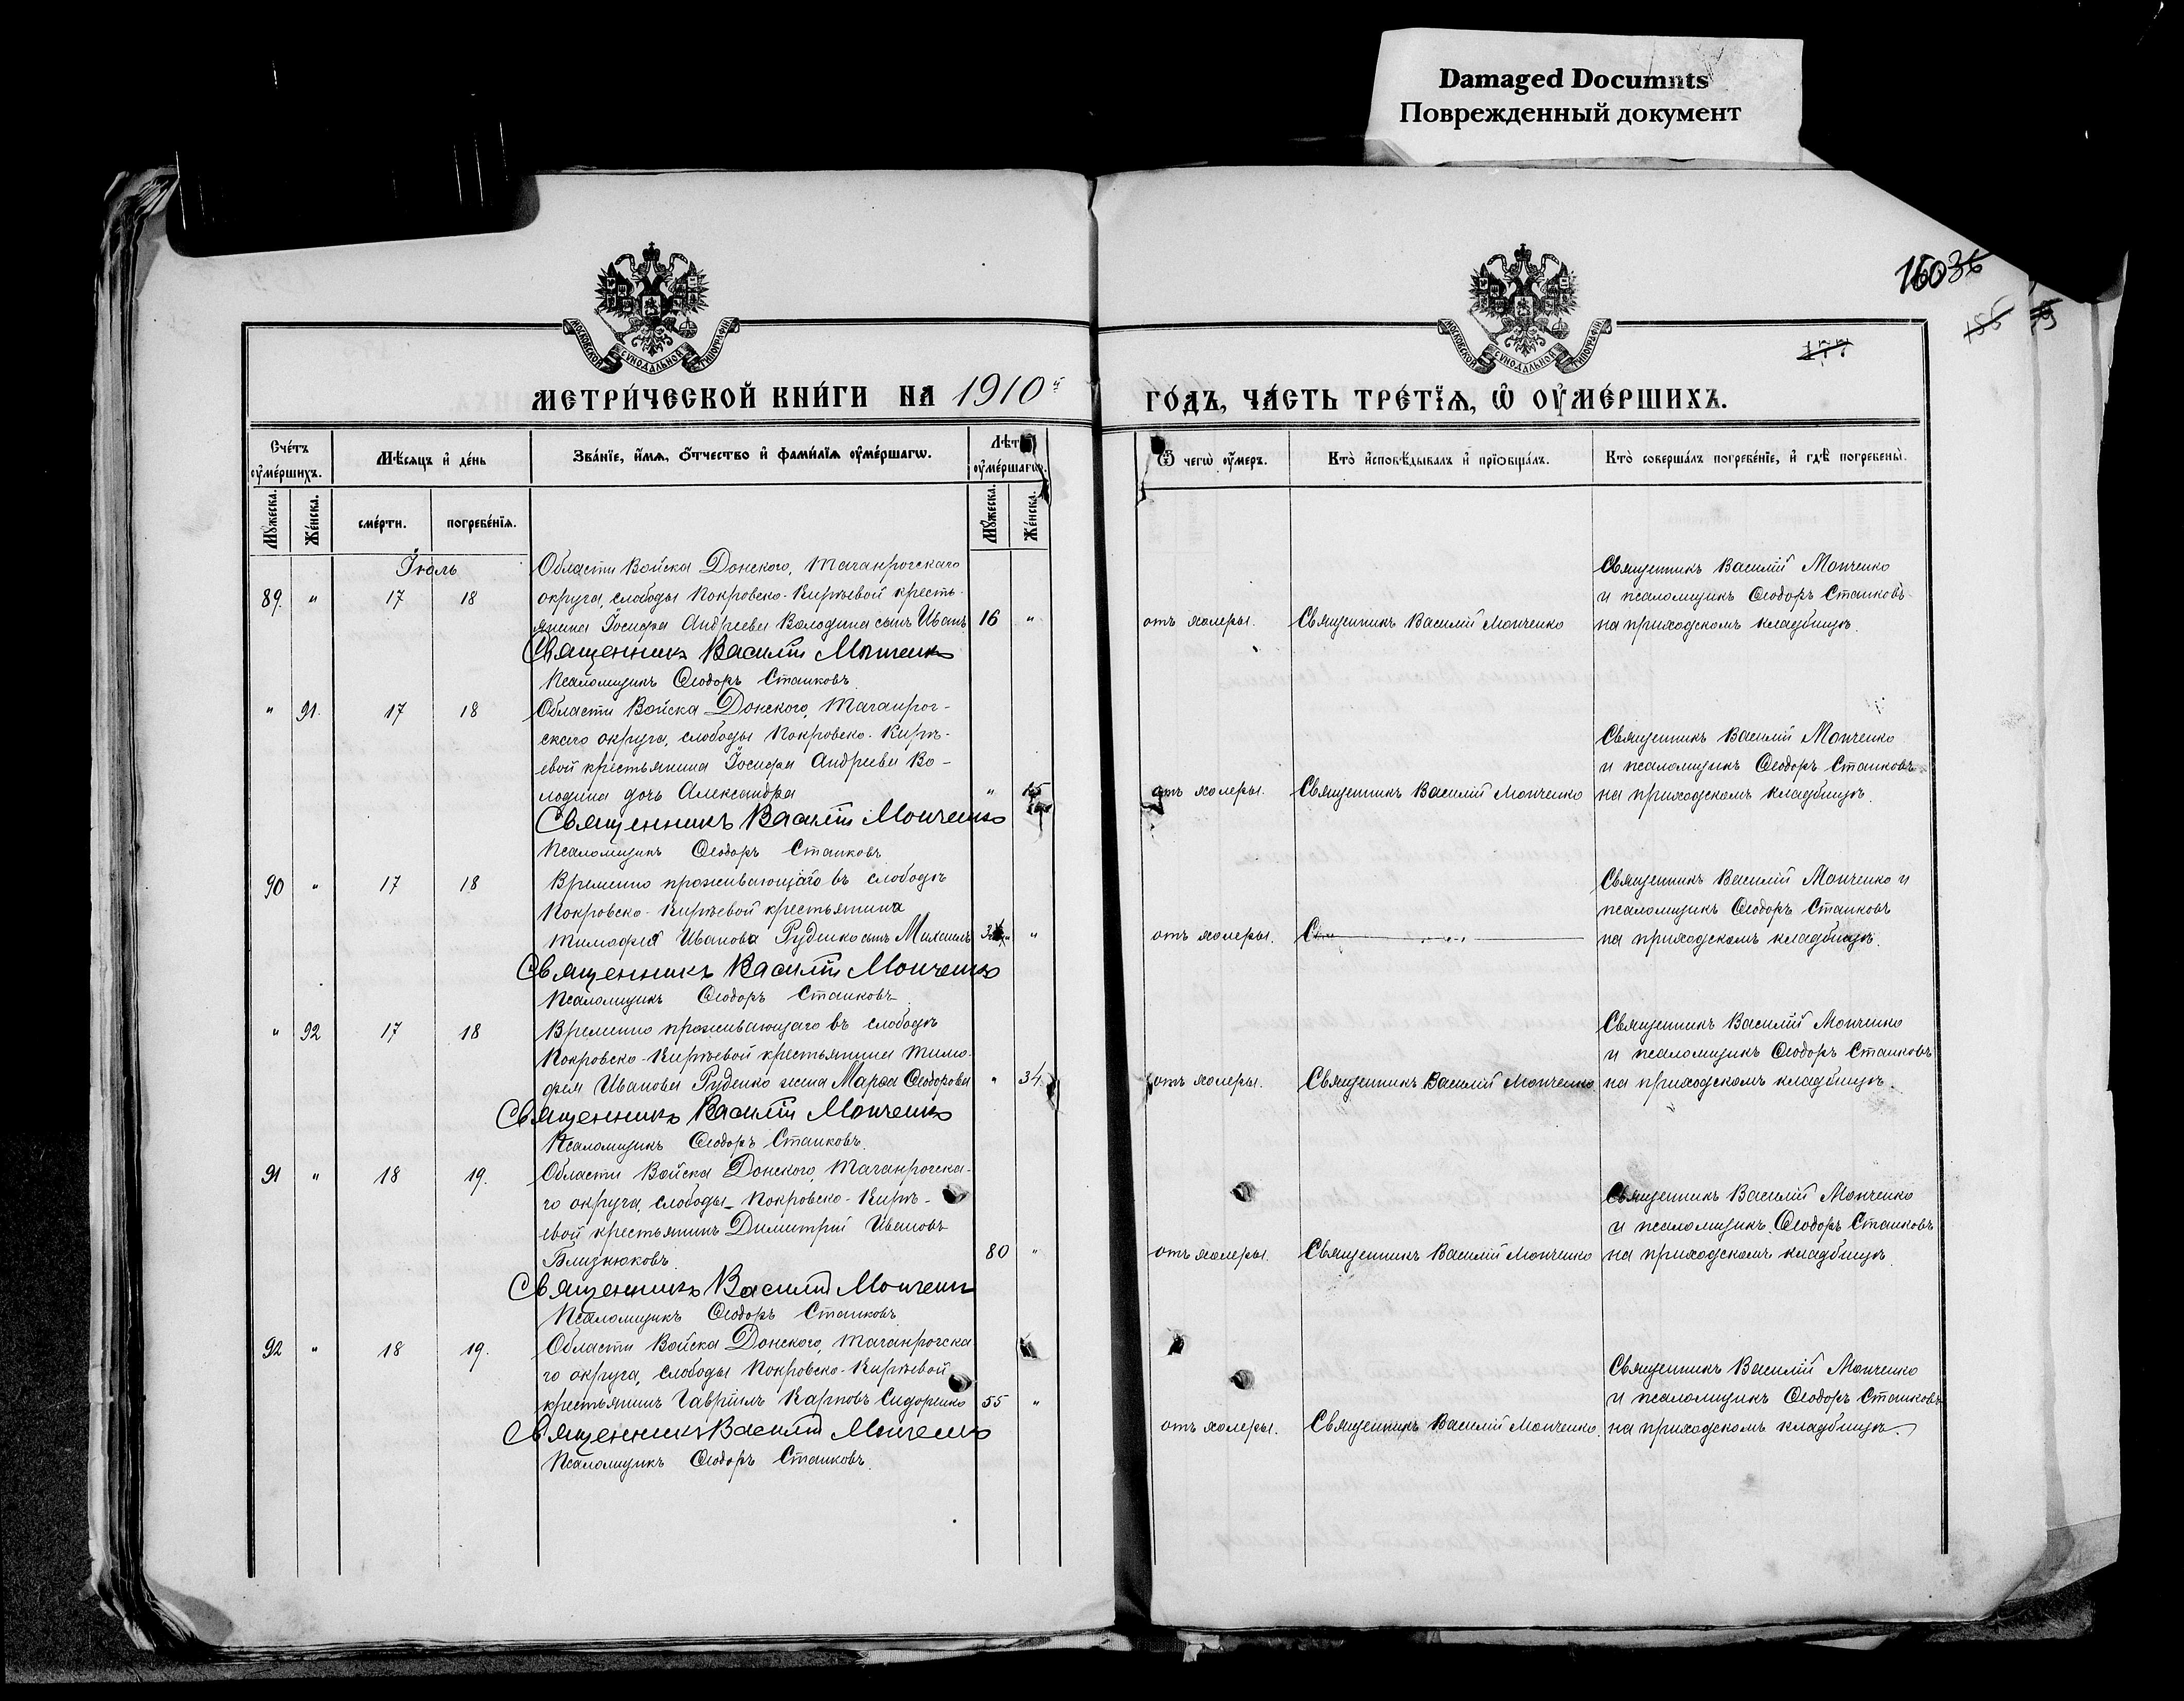 Damaged Documnts
Поврежденный документ
МОСКОВСКОЙ СУНОДАЛЬНОЙ ТИПОГРАФІИ
МОСКОВСКОЙ СУНОДАЛЬНОЙ ТИПОГРАФІИ
177
МЕТРИ́ЧЕСКОЙ КНИ́ГИ НА 1910й
ГО́ДЪ, ЧА́СТЬ ТРЕ́ТЇѦ, Ѡ҆ ОУ҆МЕ́РШИХЪ.
Сче́тъ оу҆ме́ршихъ.
Мѣ́сяцъ и҆ де́нь
Зва́нїе, и҆́мѧ, ѻ҆́тчество и҆ фами́лїѧ оу҆ме́ршагѡ.
Лѣт оу҆ме́ршагѡ.
Ѿ чегѡ̀ оу҆́меръ.
Кто̀ и҆сповѣ́дывалъ и҆ прїѡбща́лъ.
Кто̀ соверша́лъ погребе́нїе, и҆ гдѣ̀ погребены̀.
Мꙋ́жеска.
Же́нска.
сме́рти.
погребе́нїѧ.
Мꙋ́жеска.
Же́нска.
Іюль
Области Войска Донского, Таганрогскаго
89. " 17 18 округа, слободы Покровско-Кирѣевой кресть-
янина Іосифа Андреева Володина сынъ Иванъ 16 "
Священникъ Василій Мончен​ко
Псаломщикъ Ѳеодоръ Станковъ.
отъ холеры. Священникъ Василій Монченко
Священникъ Василій Монченко
и псаломщикъ Ѳеодоръ Станковъ
на приходскомъ кладбищѣ.
" 91. 17 18 Области Войска Донского, Таганрог-
скаго округа, слободы Покровско-Кирѣ-
евой крестьянина Іосифа Андреева Во-
лодина дочь Александра "
Священникъ Василій Монченко
Псаломщикъ Ѳеодоръ Станковъ
отъ холеры. Священникъ Василій Монченко
Священникъ Василій Монченко
и псаломщикъ Ѳеодоръ Станковъ
на приходскомъ кладбищѣ.
90 " 17 18 Временно проживающаго въ слободѣ
Покровско-Кирѣевой крестьянина
Тимофея Иванова Руденко сынъ Михаилъ "
Священникъ Василій Монченко
Псаломщикъ Ѳеодоръ Станковъ.
отъ холеры.
Священникъ Василій Монченко и
псаломщикъ Ѳеодоръ Станковъ
на приходскомъ кладбищѣ.
" 92 17 18 Временно проживающаго въ слободѣ
Покровско-Кирѣевой крестьянина Тимо-
фея Иванова Руденко жена Марѳа Ѳеодорова " 34
Священникъ Василій Монченко
Псаломщикъ Ѳеодоръ Станковъ.
отъ холеры. Священникъ Василій Монченко
Священникъ Василій Монченко
и псаломщикъ Ѳеодоръ Станковъ
на приходскомъ кладбищѣ.
91 " 18 19. Области Войска Донского, Таганрогска-
го округа, слободы Покровско-Кирѣ-
евой крестьянинъ Димитрій Ивановъ
Близнюковъ. 80 "
Священникъ Василій Монченко
Псаломщикъ Ѳеодоръ Станковъ
отъ холеры. Священникъ Василій Монченко
Священникъ Василій Монченко
и псаломщикъ Ѳеодоръ Станковъ
на приходскомъ кладбищѣ.
92 " 18 19. Области Войска Донского, Таганрогска
го округа, слободы Покровско-Кирѣевой
крестьянинъ Гавріилъ Карповъ Сидоренко 55 "
Священникъ Василій Монченко
Псаломщикъ Ѳеодоръ Станковъ.
отъ холеры. Священникъ Василій Монченко.
Священникъ Василій Монченко
и псаломщикъ Ѳеодоръ Станковъ
на приходскомъ кладбищѣ.